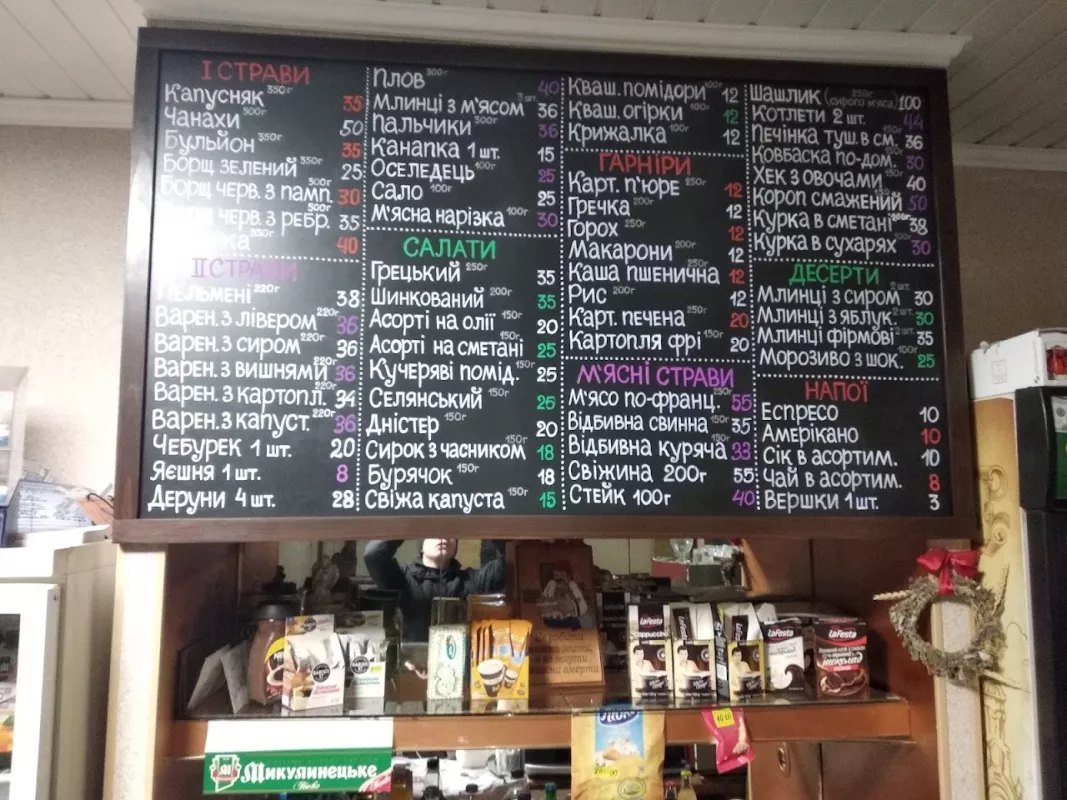 І СТРАВИ
Капусняк 350г 35
Чанахи 300г 50
Бульйон 350г 35
Борщ зелений 350г 25
Борщ черв. з памп. 300г 30
черв. з ребр. 500г 35
ка 350г 40
ІІ СТРАВИ
Пельмені 220г 38
Варен. з лівером 220г 36
Варен. з сиром 220г 36
Варен. з вишнями 220г 36
Варен. з картопл. 220г 34
Варен. з капуст. 220г 36
Чебурек 1 шт. 20
Яєшня 1 шт. 8
Деруни 4 шт. 28
Плов 300г 40
Млинці з м'ясом 3 шт. 36
Пальчики 300г 36
Канапка 1 шт. 15
Оселедець 100г 25
Сало 100г 25
М'ясна нарізка 100г 30
САЛАТИ
Грецький 250г 35
Шинкований 200г 35
Асорті на олії 150г 20
Асорті на сметані 150г 25
Кучеряві помід. 150г 25
Селянський 150г 25
Дністер 150г 20
Сирок з часником 150г 18
Бурячок 150г 18
Свіжа капуста 150г 15
Кваш. помідори 100г 12
Кваш. огірки 100г 12
Крижалка 100г 12
ГАРНІРИ
Карт. п'юре 250г 12
Гречка 200г 12
Горох 250г 12
Макарони 200г 12
Каша пшенична 200г 12
Рис 200г 12
Карт. печена 250г 20
Картопля фрі 150г 20
М'ЯСНІ СТРАВИ
М'ясо по-франц. 250г 55
Відбивна свинна 150г 35
Відбивна куряча 150г 33
Свіжина 200г 55
Стейк 100г 40
Шашлик (250г сирого м'яса) 100
Котлети 2 шт. 44
Печінка туш. в см. 36
Ковбаска по-дом. 30
Хек з овочами 150г 40
Короп смажений 50
Курка в сметані 200г 38
Курка в сухарях 100г 30
ДЕСЕРТИ
Млинці з сиром 2 шт. 30
Млинці з яблук. 2 шт. 30
Млинці фірмові 2 шт. 35
Морозиво з шок. 100г 25
НАПОЇ
Еспресо 10
Амерікано 10
Сік в асортим. 10
Чай в асортим. 8
Вершки 1 шт. 3
LaFesta
Cappuccino
LaFesta
LaFesta
LaFesta
LaFesta
Микулинецьке
Пиво